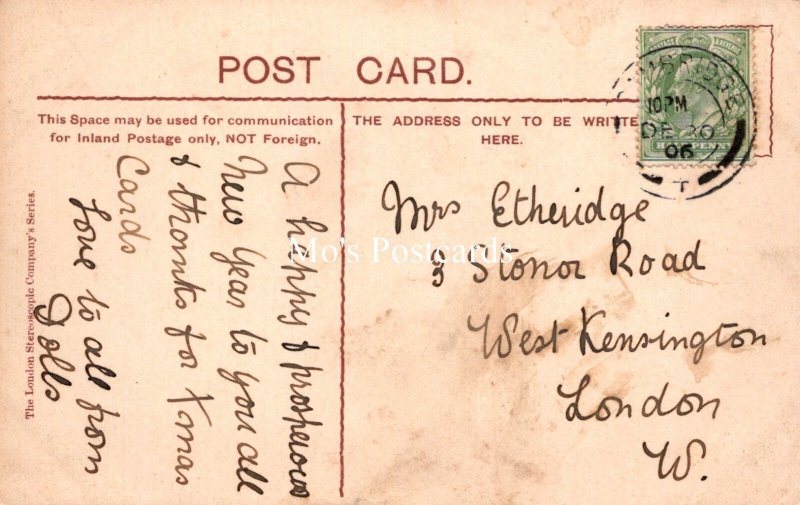 POST CARD.
This Space may be used for communication
for Inland Postage only, NOT Foreign.
THE ADDRESS ONLY TO BE WRITTE
HERE.
A happy & prosperous
New Year to you all
& thanks for Xmas
Cards
Love to all from
Dolls
Mrs Etheridge
3 Stonor Road
West Kensington
London
W.
BRIDGE
10PM
DE 30
06
T
POSTAGE
HALFPENNY
The London Stereoscopic Company's Series.
Mo's Postcards